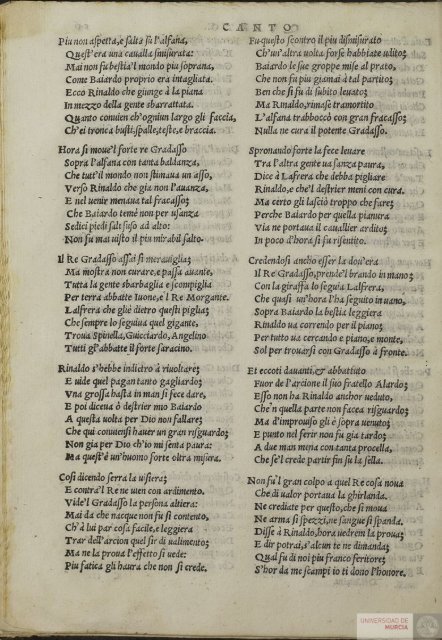 CANTO
Piu non aspetta, e salta sù l'alfana,
Quest'era una caualla smisurata:
Mai non fu bestia'l mondo piu soprana,
Come Baiardo proprio era intagliata.
Ecco Rinaldo che giunge à la piana
In mezzo della gente sbarrattata.
Quanto conuien ch'ogniun largo gli faccia,
Ch'ei tronca busti, spalle, teste, e braccia.
Hora si moue'l forte re Gradasso
Sopra l'alfana con tanta baldanza,
Che tutt'il mondo non stimaua un asso,
Verso Rinaldo che gia non l'auanza,
E nel uenir menaua tal fracasso;
Che Baiardo temè non per usanza
Sedici piedi salì suso ad alto:
Non fu mai uisto il piu mirabil salto.
Il Re Gradasso assai si merauiglia;
Ma mostra non curare, e passa auante,
Tutta la gente sbarbaglia e scompiglia
Per terra abbatte Iuone, e'l Re Morgante.
Lalfrera che gliè dietro questi piglia;
Che sempre lo seguiua quel gigante,
Troua Spinella, Guicciardo, Angelino
Tutti gl'abbatte il forte saracino.
Rinaldo s'hebbe indietro à riuoltare;
E uide quel pagan tanto gagliardo;
Vna grossa hasta in man si fece dare,
E poi diceua ò destrier mio Baiardo
A questa uolta per Dio non fallare;
Che qui conuiensi hauer un gran risguardo;
Non gia per Dio ch'io mi senta paura:
Ma quest'è un'huomo forte oltra misera.
Cosi dicendo serra la uisiera;
E contra'l Re ne uien con ardimento.
Vide'l Gradasso la persona altiera:
Mai da che nacque non fu si contento,
Ch'à lui par cosa facile, e leggiera
Trar dell'arcion quel sir di ualimento;
Ma ne la proua l'effetto si uede:
Piu fatica gli haura che non si crede.
Fu questo scontro il piu dismisurato
Ch'un'altra uolta forse habbiate udito;
Baiardo le sue groppe mise al prato,
Che non fu piu giamai à tal partito;
Ben che si fu di subito leuato;
Ma Rinaldo, rimase tramortito
L'alfana traboccò con gran fracasso;
Nulla ne cura il potente Gradasso.
Spronando forte la fece leuare
Tra l'altra gente ua sanza paura,
Dice à Lafrera che debba pigliare
Rinaldo, e che'l destrier meni con cura.
Ma certo gli lasciò troppo che fare;
Perche Baiardo per quella pianura
Via ne portaua il cauallier ardito;
In poco d'hora si fu risentito.
Credendosi ancho esser la dou'era
Il Re Gradasso, prende'l brando in mano;
Con la giraffa lo seguia Lalfrera,
Che quasi un'hora l'ha seguito in uano,
Sopra Baiardo la bestia leggiera
Rinaldo ua correndo per il piano;
Per tutto ua cercando e piano, e monte,
Sol per trouarsi con Gradasso à fronte.
Et eccoti dauanti, & abbattuto
Fuor de l'arcione il suo fratello Alardo;
Esso non ha Rinaldo anchor ueduto,
Che'n quella parte non facea risguardo;
Ma d'improuiso gli è sopra uenuto;
E punto nel ferir non fu gia tardo;
A due man mena con tanta procella,
Che se'l crede partir fin su la sella.
Non fu'l gran colpo a quel Re cosa noua
Che di ualor portaua la ghirlanda.
Ne crediate per questo, che si moua
Ne arma si spezzi, ne sangue si spanda.
Disse à Rinaldo, hora uedrem la proua;
E dir potrai, s'alcun te ne dimanda;
Qual fu di noi piu franco feritore;
S'hor da me scampi io ti dono l'honore.
UNIVERSIDAD DE
MURCIA